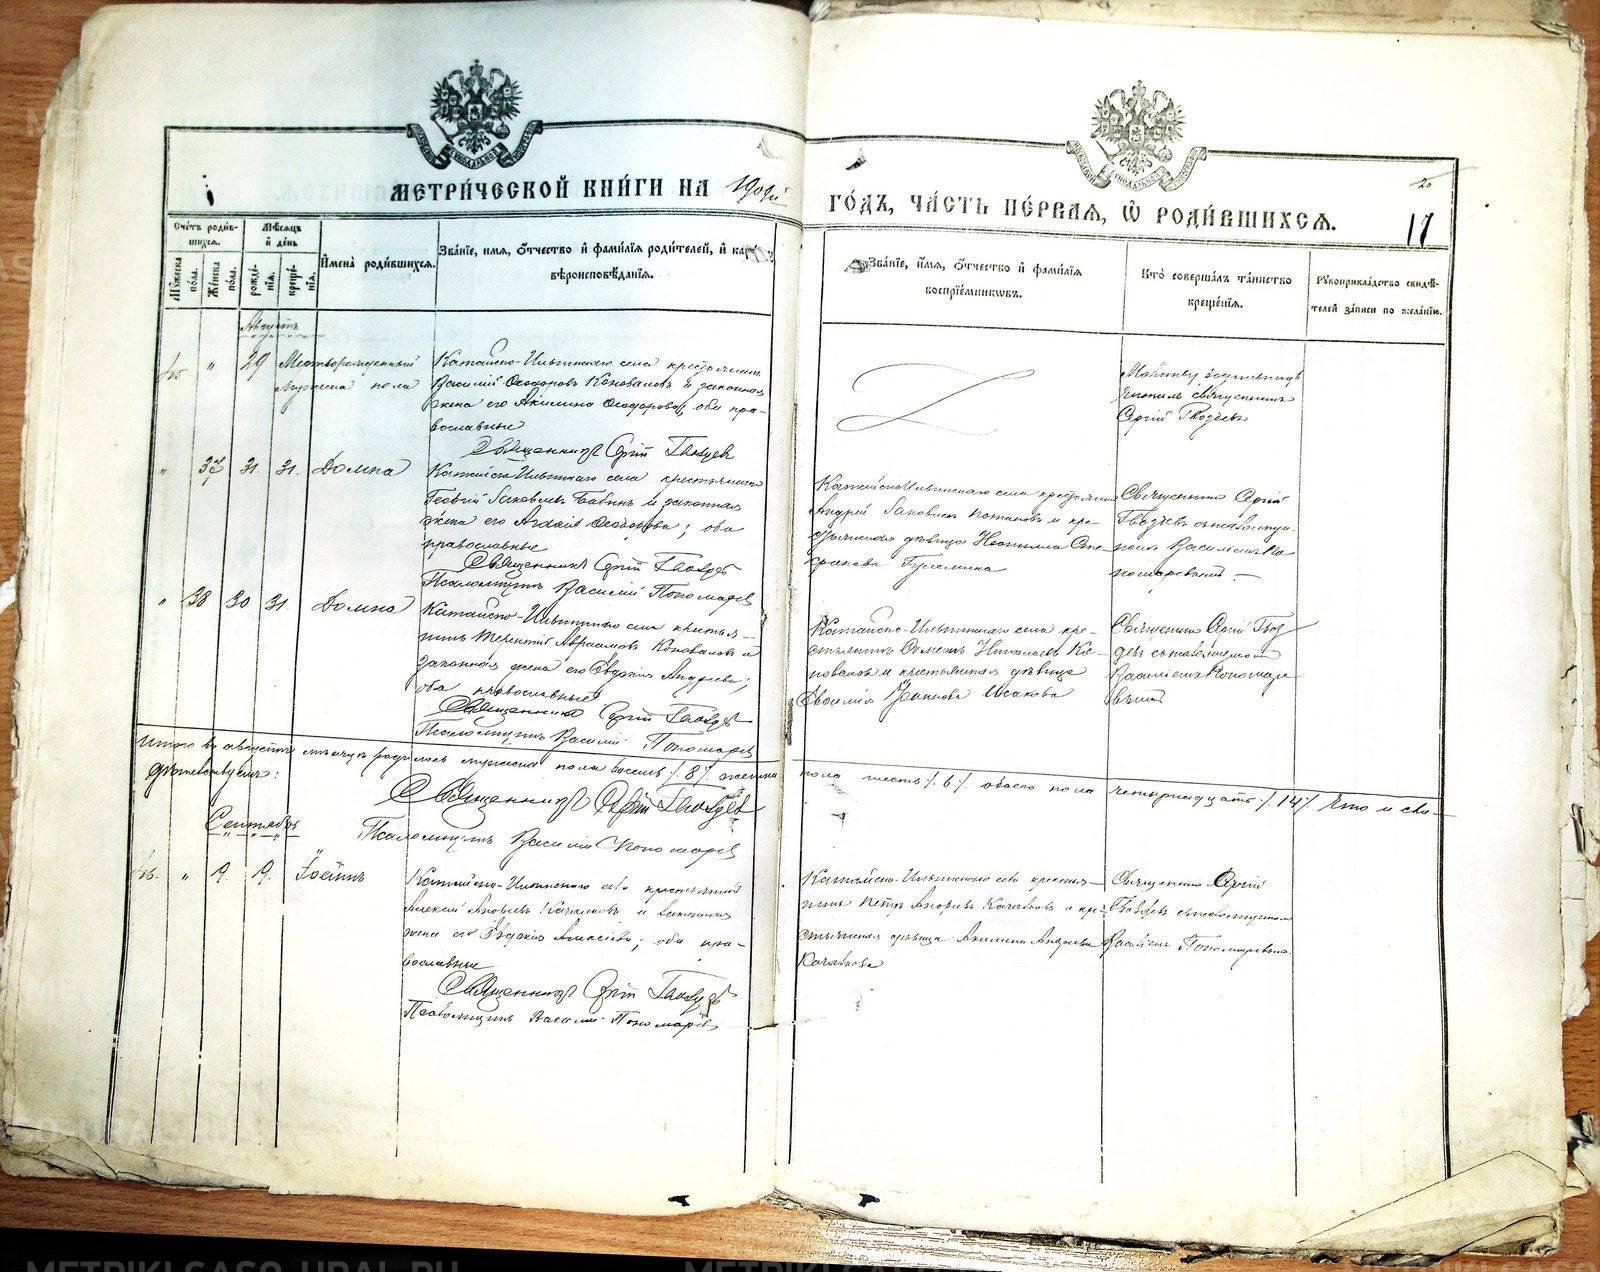 МЕТРИ́ЧЕСКОЙ КНИ́ГИ НА
ГО́ДЪ, ЧА́СТЬ ПЕ́РВАЯ, Ѡ РОДИ́ВШИХСЯ.
20
17
Сче́тъ роди́в-
шихся.
Мѣ́сяцъ
и҆ де́нь
Мꙋ́жеска
по́ла.
Же́нска
по́ла.
рожде́-
нїя.
креще́-
нїя.
И҆мена̀ роди́вшихся.
Зва́нїе, и҆́мя, о҆́тчество и҆ фами́лїя роди́телей, и҆
вѣроисповѣ́данїя.
Зва́нїе, и҆́мя, о҆́тчество и҆ фами́лїя
воспрїе́мниковъ.
Кто̀ соверша́лъ та́инство
креще́нїя.
Рꙋкоприкла́дство свидѣ́-
телей за́писи по жела́нїю.
Августъ
45 " 29 Мертворожденный
мужеска пола
Катайско-Ильинскаго села крестьянинъ
Василій Ѳеодоровъ Коноваловъ и законная
жена его Акилина Ѳеодорова, оба пра-
вославные
Священникъ Сергій Гвоздев
Молитву
священникъ
Сергій Гвоздевъ
" 37 31. 31. Домна
Катайско-Ильинскаго села крестьянинъ
Георгій Іаковлевъ Бабинъ и законная
жена его Ѳеодорова; оба
православные
Священникъ Сергій Гвоздев
Псаломщикъ Василій Пономарев
Катайско-Ильинскаго села крестьянинъ
Андрей Іаковлевъ и кре-
стьянская дѣвица
Священникъ Сергій
Гвоздевъ съ псаломщи-
комъ Василіемъ По
номаревымъ.
" 38 30 31. Домна
Катайско-Ильинскаго села крестья-
нинъ Терентій Авраамовъ Коноваловъ и
законная жена его Евдокія Андреева;
оба православные
Священникъ Сергій Гвоздев
Псаломщикъ Василій Пономарев
Катайско-Ильинскаго села кре-
стьянинъ Николаевъ Ко-
новаловъ и крестьянская дѣвица
Іоаннова Исакова
Священникъ Сергій Гвоз
девъ съ псаломщикомъ
Василіемъ Понома́ре
вымъ
Итого въ августѣ мѣсяцѣ родилось мужеска пола восемь /8/ женска
пола шесть /6/ обоего пола четырнадцать /14/ Что и сви-
дѣтельствуемъ:
Священникъ Сергій Гвоздев
Псаломщикъ Василій Пономарев
Сентябрь
46. " 19. 19. Іоаннъ
Катайско-Ильинского села крестьянинъ
Алексѣй Андреевъ и законная
жена его Евдокія Алексѣева; оба пра-
вославные
Священникъ Сергій Гвоздев
Псаломщикъ Василій Пономарев
Катайско-Ильинского села крестья-
нинъ Петръ Андреевъ и кре-
стьянская дѣвица Акилина Андреева
Священникъ Сергій
Гвоздевъ съ псаломщикомъ
Василіемъ Пономаревымъ
METRIKI.GASO-URAL.RU